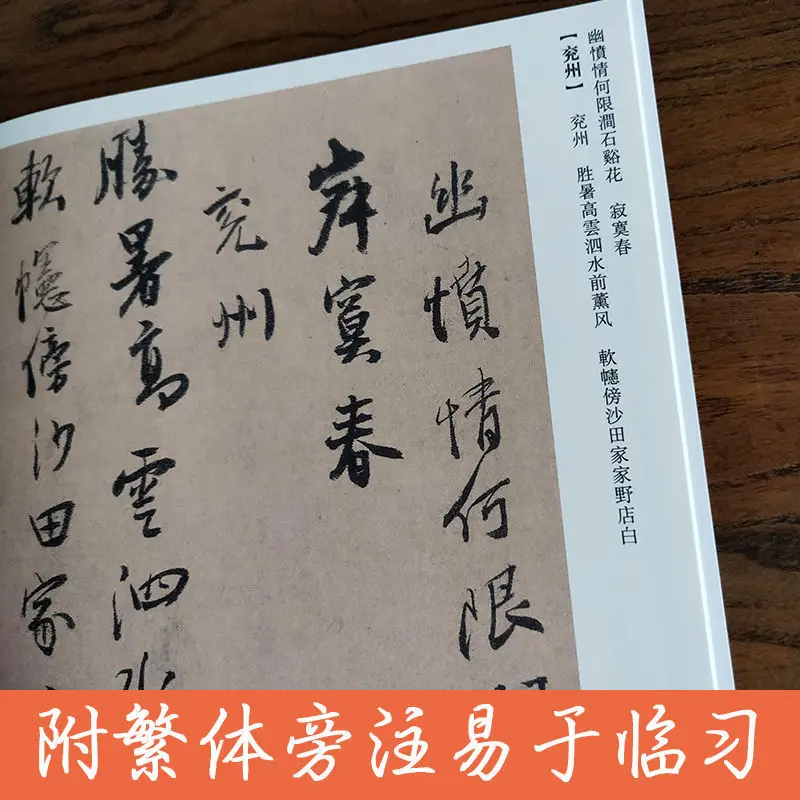 幽憤情何限澗石谿花　寂寞春
【兖州】　兖州　胜暑高雲泗水前薰风　軟幰傍沙田家家野店白
幽憤情何限
寂寞春
兖州
勝暑高雲泗水
軟幰傍沙田家
附繁体旁注易于临习